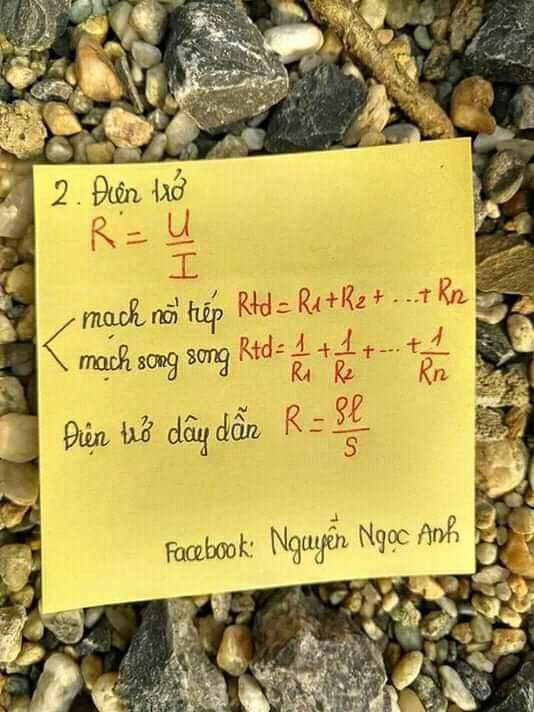 2. Điện trở
R = U/I
mạch nối tiếp Rtd = R1 + R2 + ... + Rn
mạch song song Rtd = 1/R1 + 1/R2 + ... + 1/Rn
Điện trở dây dẫn R = ρl/S
Facebook: Nguyễn Ngọc Anh